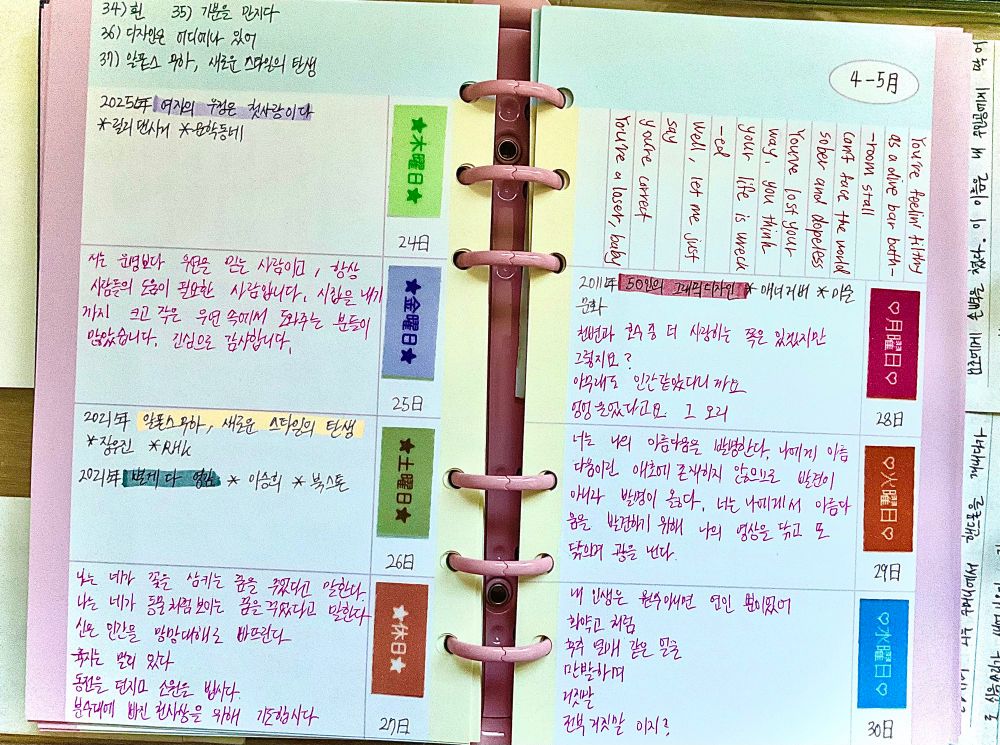 34) 흰 35) 기분을 만지다
36) 디자인은 어디에나 있어
37) 알폰스 무하, 새로운 스타일의 탄생
2025年 여자의 우정은 첫사랑이다
*릴리 댄시거 *문학동네
★木曜日★
24日
저는 운명보다 우연을 믿는 사람이고, 항상
사람들의 도움이 필요한 사람입니다. 시집을 내기
까지 크고 작은 우연 속에서 도와주는 분들이
많았습니다. 진심으로 감사합니다.
★金曜日★
25日
2021年 알폰스 무하, 새로운 스타일의 탄생
*장우진 *RHK
2021年 별게 다 영감 *이승희 *북스톤
★土曜日★
26日
나는 네가 꽃을 삼키는 꿈을 꾸었다고 말한다.
나는 네가 동물처럼 보이는 꿈을 꾸었다고 말한다
신은 인간을 망망대해로 빠뜨린다
육지는 멀리 있다
동전을 던지며 소원을 빕시다.
분수대에 빠진 천사상을 위해 기도합시다
★休日★
27日
4-5月
You're feelin' filthy
as a dive bar bath-
-room stall
Can't face the world
sober and dopeless
You've lost your
way, you think
your life is wreck
-ed
Well, let me just
say
you're correct
You're a loser, baby
2011年 50인의 그래픽 디자인 *매너거버 *미술
문화
천변과 호수 중 더 사랑하는 쪽은 있겠지만
그렇지요?
아무래도 인간 같았다니까요
엉엉 울었다고요 그 오리
♡月曜日♡
28日
너는 나의 아름다움은 발명한다. 나에게 아름
다움이란 애초에 존재하지 않으므로 발견이
아니라 발명이 옳다. 너는 나에게서 아름다
움을 발견하기 위해 나의 영상을 닦고 또
닦으며 광을 낸다.
♡火曜日♡
29日
내 인생은 원수 아니면 연인 뿐이었어
화약고처럼
폭죽 열매 같은 말을
만발하며
거짓말
전부 거짓말이지?
♡水曜日♡
30日